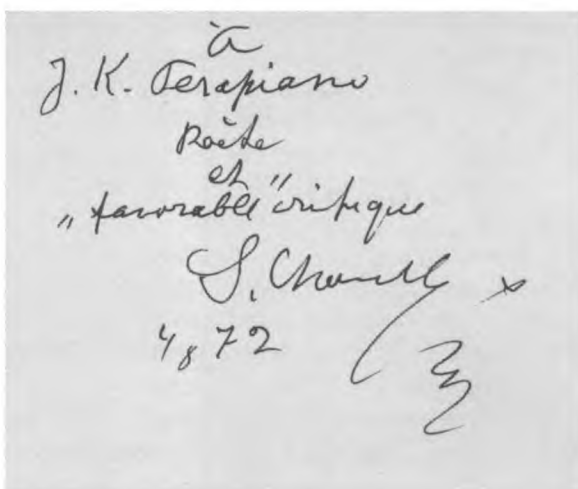 à
J. K. Terapiano
Poète
et
„favorable" critique
S.
4 8 72